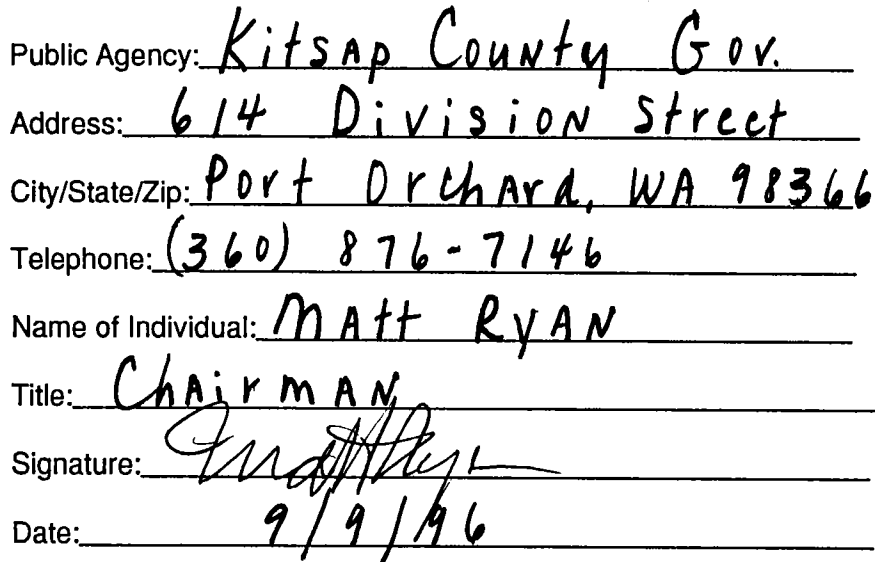 Public Agency: Kitsap County Gov.
Address: 614 Division Street
City/State/Zip: Port Orchard, WA 98366
Telephone: (360) 876-7146
Name of Individual: Matt Ryan
Title: Chairman
Signature: Matt Ryan
Date: 9/9/96